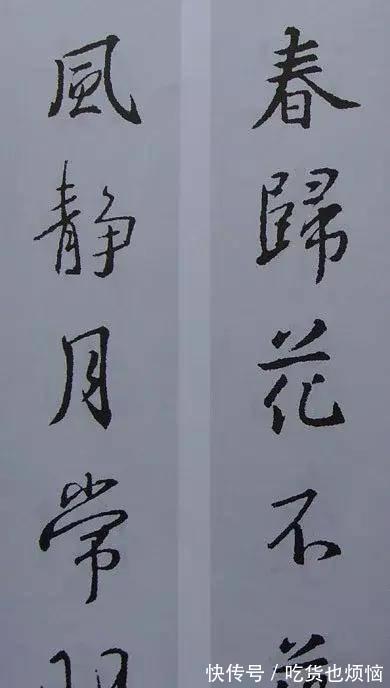 春歸花不
風静月常
快传号／吃货也烦恼